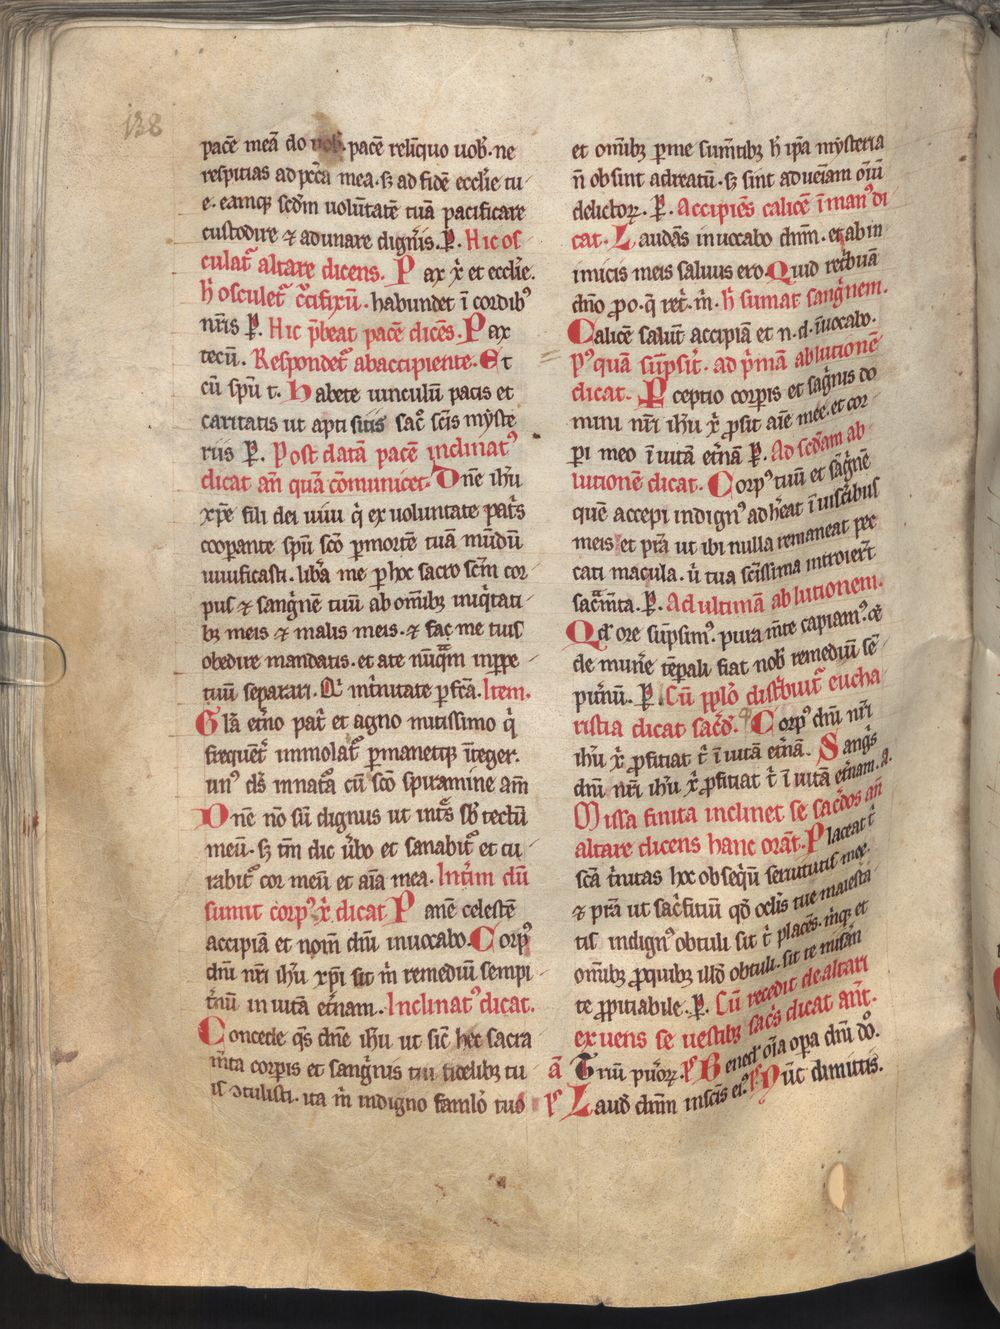 138
pacē meā do vob᷒. pacē relīquo uob᷒. ne
respitias ad pccā mea. sꝫ ad fidē ecclīe tu
e. eamqꝫ sedm uolūtatē tuā pacificare
custodire ⁊ adunare digneris. P̱. Hic os
culat᷒ altare dicens. Pax xͥ et ecclīe.
h̄ osculet᷒ cͨifixū. habundet ī cordibꝰ
nr̄is P̱. Hic p̄beat pacē dicēs. Pax
tecū. Respondet᷒ ab accipiente. Et
cū spū t. Habete uinculū pacis et
caritatis ut apti sitis sac᷒ scīs myste
riis P̱. Post datā pacē inclinatꝰ
dicat an̄ quā cōmunicet. Dn̄e ih̄u
xp̄e fili dei uiui qͥ ex uoluntate pat᷒s
coopante spū scō p mortē tuā mūdū
uiuificasti. lib᷒a me p hoc sacro scm̄ cor
pus ⁊ sangͥnē tuū ab om̄ibꝫ iniqͥtati
bꝫ meis ⁊ malis meis. ⁊ fac me tuis
obedire mandatis. et a te nūqͣm inppe
tuū separari. Qͥ in tͥnitate p fcā. Item.
Glā et᷒no patͥ et agno mitissimo qͥ
frequēt᷒ immolat᷒ permanetqꝫ īteger.
unꝰ dꝰ in natͣ cū scō spiramine am̄
Dn̄e nō sū dignus ut int᷒s sb᷒ tectū
meū. sꝫ tm̄ dic u᷒bo et sanabit᷒ et cu
rabit᷒ cor meū et aīa mea. Intͥm dū
sumit corpꝰ xͥ dicat Panē celestē
accipiā et nom̄ dn̄i inuocabo. Corpꝰ
dn̄i nr̄i ih̄u xp̄i sit mͥ remediū sempi
t᷒nū in uitā et᷒nam. Inclinatꝰ dicat.
Concede qs̄ dn̄e ih̄u ut sic̄ hec sacra
m̄ta corpis et sangͥnis tui fidelibꝫ tu
is ꝯtulisti. ita mͥ indigno famlo tuo
et om̄ibꝫ p me sum̄tibꝫ h̄ ip̄a mysteria
n̄ obsint ad reatū. sꝫ sint ad ueīam oīū
delictoꝝ. P̱. Accipiēs calicē ī manꝰ di
cat. Laudās inuocabo dn̄m. et ab in
imicis meis saluus ero. Quid ret᷒buā
dn̄o ꝓ o. q̄ ret᷒. mͥ. h̄ sumat sangͥnem.
Calicē salut᷒ accipiā et n. d. īuocabo.
Pꝰ quā sūpsit᷒. ad pͥmā ablutionē
dicat. Pceptio corpis et sagͥnis do
mini nr̄i ih̄u xͥ ꝓsit aīe mee. et cor
pi meo ī uitā et᷒nā P̱. Ad scdam ab
lutionē dicat. Corpꝰ tuū et sāgͥnē
quē accepi indignꝰ adh᷒eat ī uisc᷒ibus
meis et p̄ra ut ibi nulla remaneat pec
cati macula. uͥ tua sc̄issima introier̄t
sacͣm̄ta. P̱. Ad ultimā ablutionem.
Qd̄ ore sūpsimꝰ. pura m̄te capiamꝰ. et
de mun᷒e tēpali fiat nob᷒ remediū sē
pit᷒nū. P̱. Cū pplō dist᷒buit᷒ eucha
ristia dicat sac᷒d᷒. Corpꝰ dn̄i nr̄i
ih̄u xͥ ꝓficiat tͥ ī uitā et᷒nā. Sangͥs
dn̄i nr̄i ih̄u xͥ ꝓficiat tͥ ī uitā et᷒nam. a.
Missa finita inclinet se sac᷒dos an̄
altare dicens hanc orāt. Placeat tͥ
scā tͥnitas hoc obseqͥū seruitutis mee.
⁊ p̄ra ut sac᷒fitiū qd̄ oclis tue maiesta
tis indignꝰ obtuli sit tͥ placēs. mͥqꝫ et
om̄ibꝫ ꝓ quibꝫ illd̄ obtuli. sit te misān
te ꝓpitiabile. P̱. Cū recedit de altari
exuens se uestibꝫ sac᷒s dicat ant̄.
ā Tnū pu᷒oꝝ. pͥ Bened᷒ oīa opa dn̄i dō.
pͥ Laud᷒ dn̄m in scīs eiꝰ. pͥ Nūc dimittis.